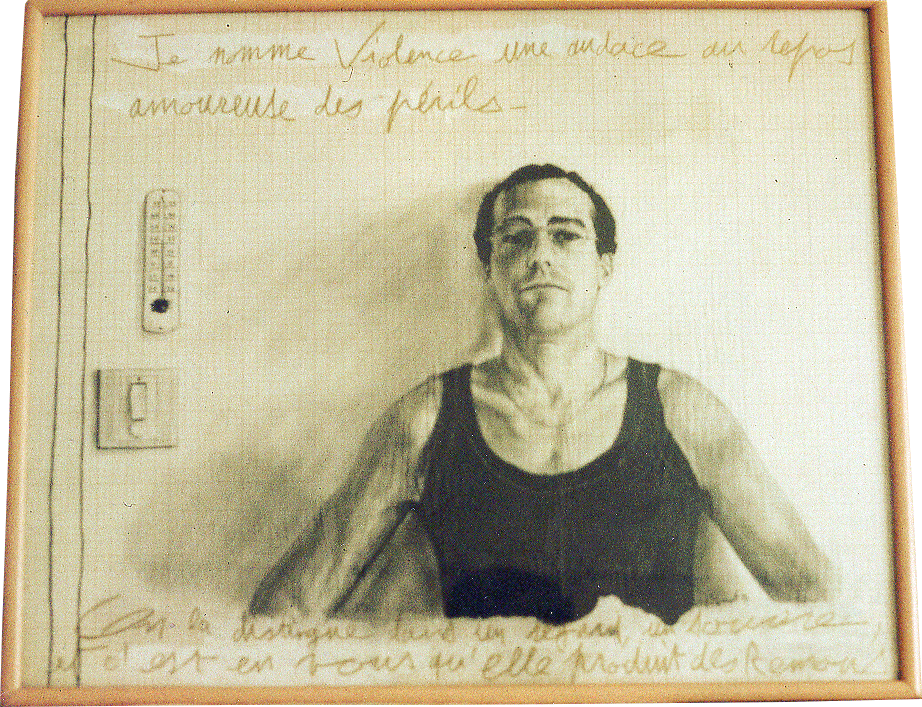 Je nomme Violence une audace au repos
amoureuse des périls -
On la distingue dans un regard, un sourire,
et c'est en vous qu'elle produit des Remous